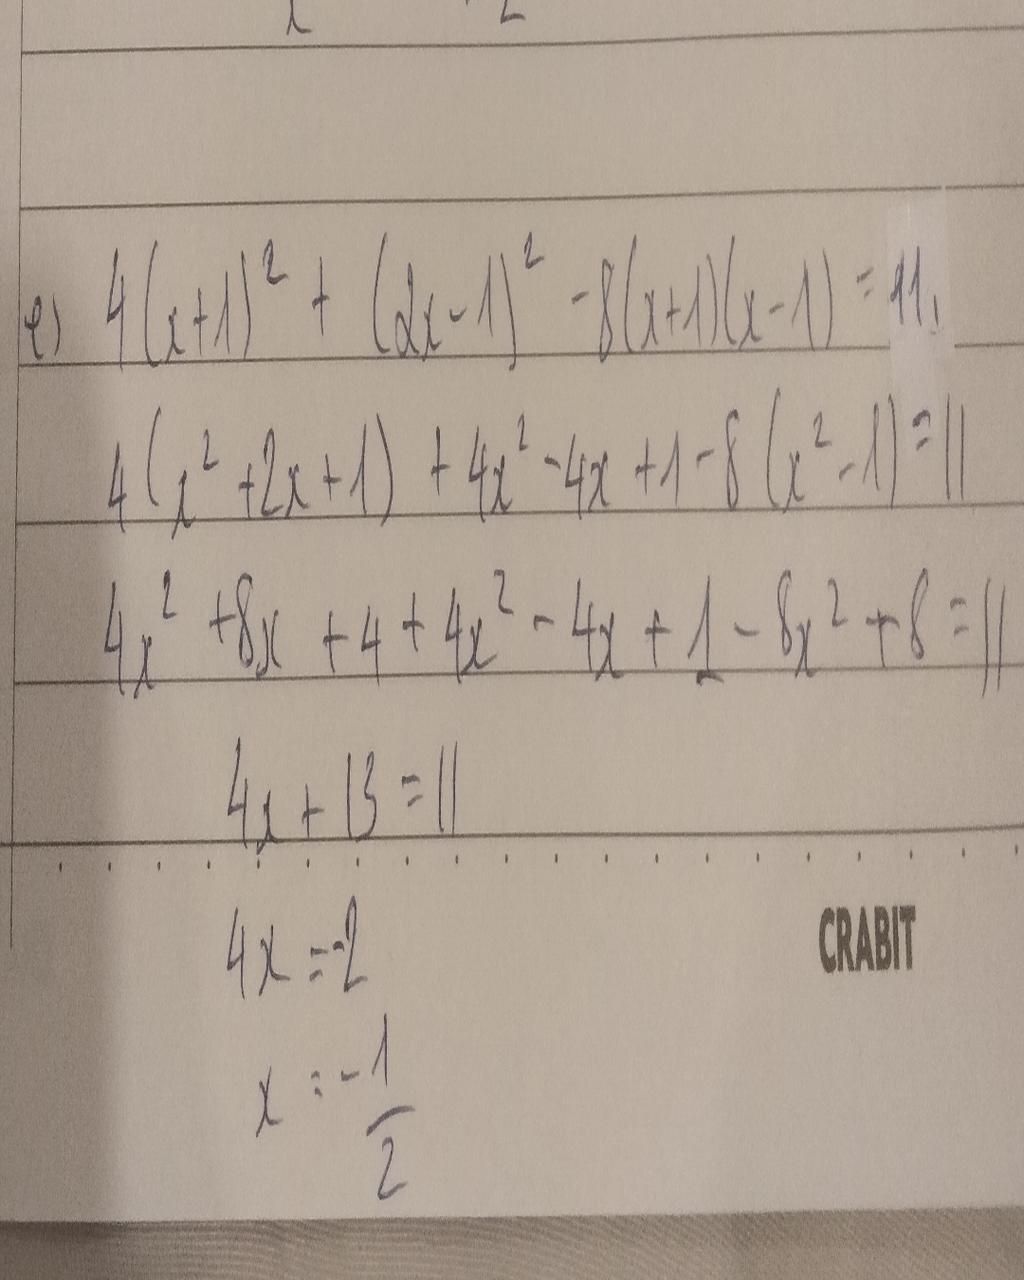 e) 4(x+1)² + (2x-1)² -8(x+1)(x-1) = 11.
4(x² +2x+1) + 4x² -4x +1 -8(x² -1) = 11
4x² +8x +4 + 4x² - 4x + 1 - 8x² +8 = 11
4x + 13 = 11
4x = -2
CRABIT
x = -1/2